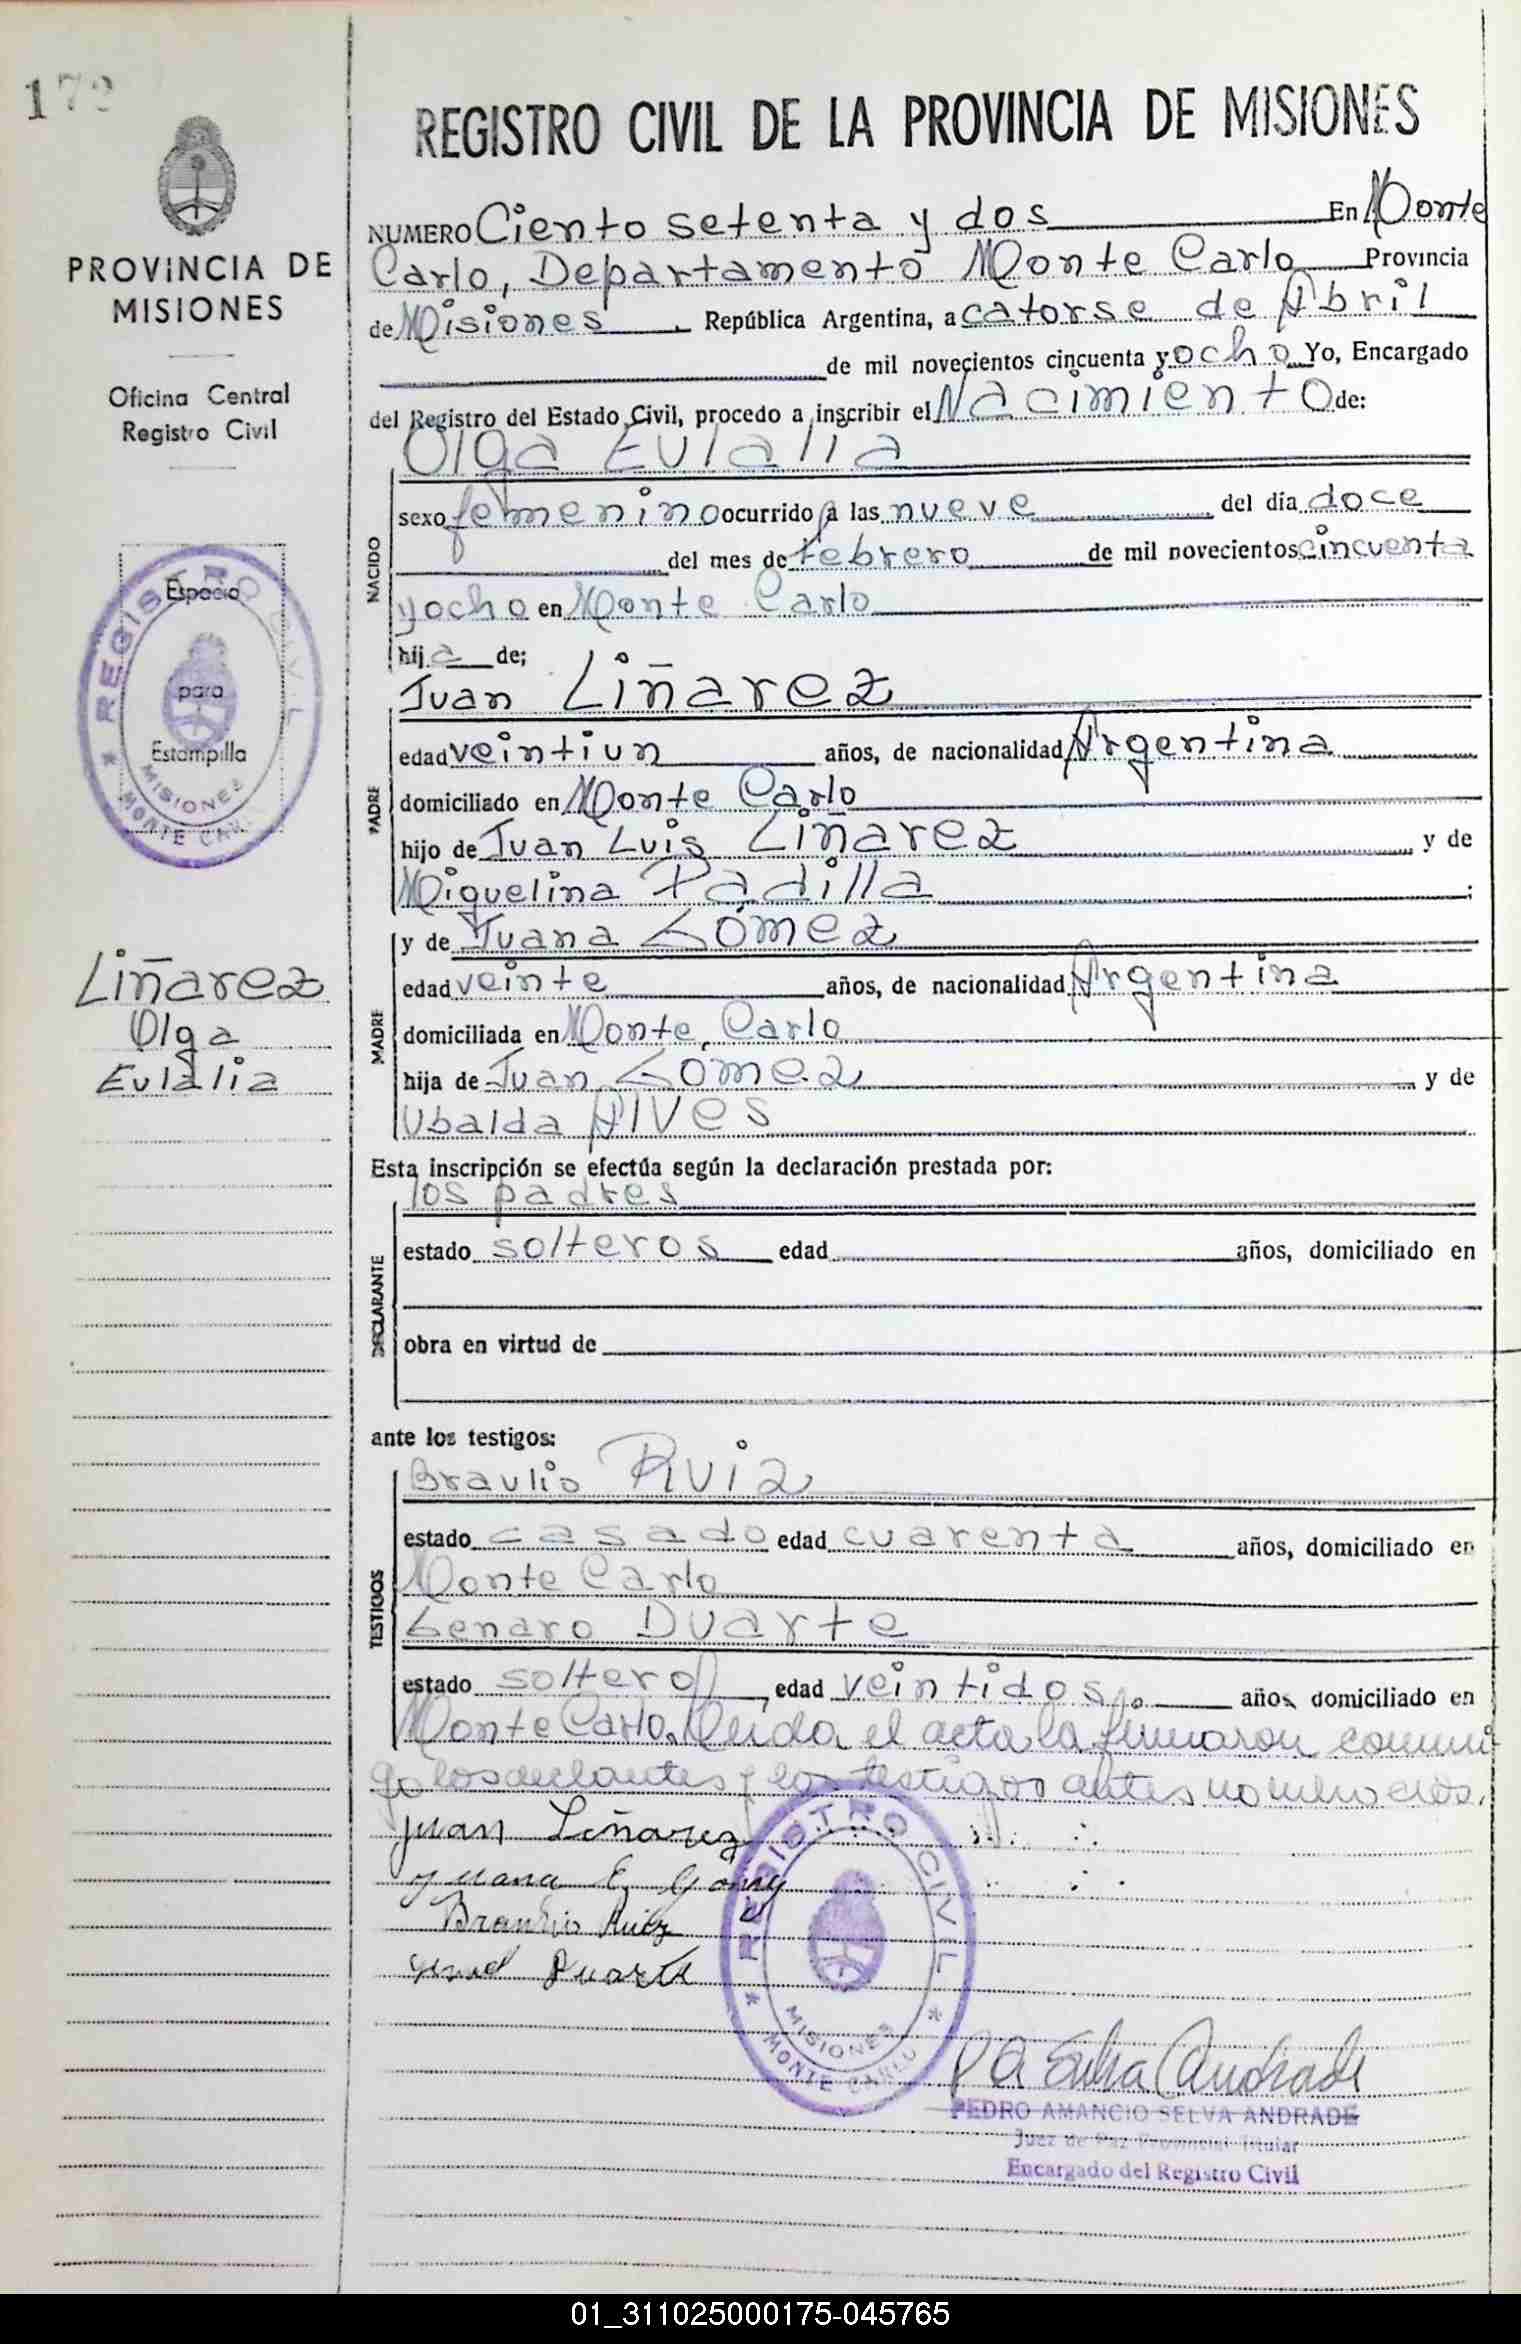 172
PROVINCIA DE
MISIONES
Oficina Central
Registro Civil
REGISTRO CIVIL
Espacio
para
Estampilla
MISIONES
* MONTE CARLO
Liñarez
Olga
Eulalia
REGISTRO CIVIL DE LA PROVINCIA DE MISIONES
NUMERO Ciento setenta y dos En Monte
Carlo, Departamento Monte Carlo Provincia
de Misiones, República Argentina, a catorse de Abril
de mil novecientos cincuenta y ocho Yo, Encargado
del Registro del Estado Civil, procedo a inscribir el Nacimiento de:
Olga Eulalia
NACIDO
sexo femenino ocurrido a las nueve del día doce
del mes de febrero de mil novecientos cincuenta
y ocho en Monte Carlo
hija de;
PADRE
Juan Liñarez
edad veintiun años, de nacionalidad Argentina
domiciliado en Monte Carlo
hijo de Juan Luis Liñarez y de
Miguelina Padilla ;
MADRE
y de Juana Gómez
edad veinte años, de nacionalidad Argentina
domiciliada en Monte Carlo
hija de Juan Gómez y de
Ubalda Alves
Esta inscripción se efectúa según la declaración prestada por:
DECLARANTE
los padres
estado solteros edad años, domiciliado en
obra en virtud de
ante los testigos:
TESTIGOS
Braulio Ruiz
estado casado edad cuarenta años, domiciliado en
Monte Carlo
Genaro Duarte
estado soltero, edad veintidos. años, domiciliado en
Monte Carlo. Leida el acta la firmaron conmi-
go los declantes y los testigos antes nombrados.
Juan Liñarez
Juana E. Gómez
Braulio Ruiz
Duarte
REGISTRO CIVIL
MISIONES
* MONTE CARLO *
P A Selva Andrade
PEDRO AMANCIO SELVA ANDRADE
Juez de Paz Provincial Titular
Encargado del Registro Civil
01_311025000175-045765